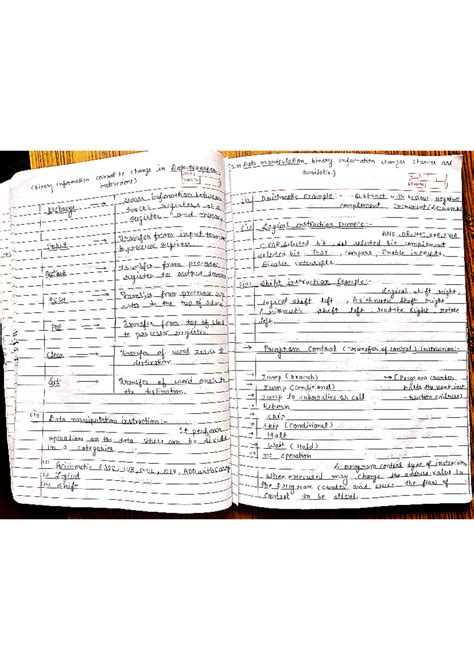 (binary information cannot be change in Data transfer
instructions)
Exchange → Swap information between
two CPU registers or a
register and memory
Input → Transfer from input terminal
to process register
Output → Transfer from processor
register to output
Push → Transfer from processor
to the top of stack
Pop → Transfer from top of stack
to processor register
Clear → Transfer of word zero's
destination
Set → Transfer of word one's to
the destination.
(ii) Data manipulation instruction:-
It perform
operations on the data. These can be divided
in 3 categories
(i) Arithmetic
(ii) Logical
(iii) Shift
Data manipulation, binary information changes chances are
available)
(i) Arithmetic Example:- Subtract with
complement
(ii) Logical instruction Example:-
selected bit, set selected bit, complement
selected bit, Test, compare, Enable interrupts,
Disable interrupts.
(iii) Shift instruction Example:-
Logical shift right,
logical shift left, Arithmetic shift right,
Arithmetic shift left, rotate Right, rotate
left.
→ Program Control (transfer of control) instruction:-
→ Jump (branch) → [Program counter
→ Jump (Conditional) holds the next inst
→ Jump to subroutine or call
→ Return
→ Skip
→ Skip (Conditional)
→ Halt
→ Wait (Hold)
→ operation
A program control type of instruction,
When executed may change the address value in
the program counter and cause the flow of
control to be altered.